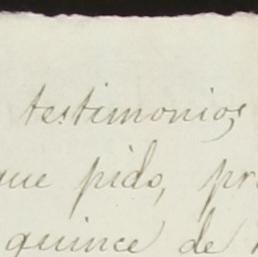 testimonios
que pido, pr
quince de